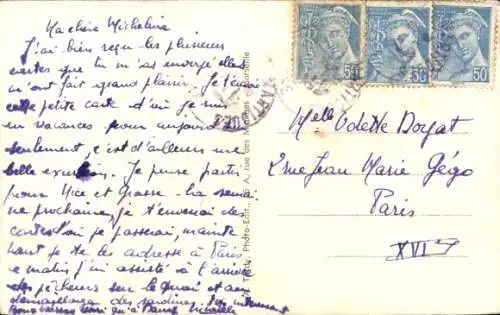 Ma chère Micheline
J'ai bien reçu les plusieurs
cartes que tu m'as envoyé elles
m'ont fait grand plaisir. Je t'envoie
cette petite carte d'où je suis
en vacances pour aujourd
seulement, c'est d'ailleurs une
belle excursion. Je pense partir
pour Nice et Grasse la semai
ne prochaine, je t'enverrai des
cartes d'où je passerai, mainte
nant je te les adresse à Paris
ce matin j'ai assisté à l'arrivée
des pêcheurs sur le quai et au
des sardines, très intéressant
Bons baisers
Photo-Edit., 35 A, rue des
50
50
50
Melle Odette
2 rue Jean Marie Gégo
Paris
XVI